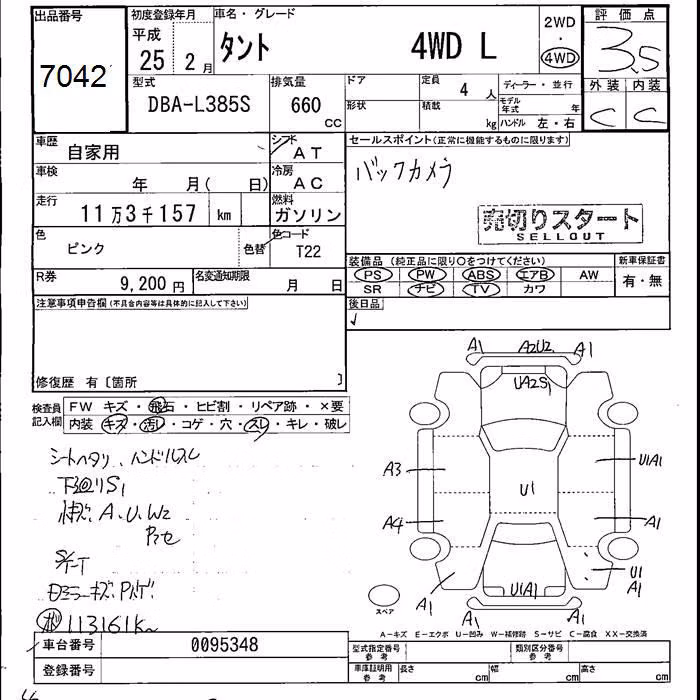 出品番号
7042
初度登録年月
平成
25 2 月
車名・グレード
タント 4WD L
2WD
・
4WD
評価点
3.5
型式
DBA-L385S
排気量
660
cc
ドア
形状
定員
4 人
積載
kg
ディーラー・並行
モデル年式 年
ハンドル 左・右
外装 内装
C C
車歴
自家用
シフト
AT
車検
年 月( 日)
冷房
AC
走行
11万3千157 km
燃料
ガソリン
色
ピンク
色替
色コード
T22
R券
9,200 円
名変通知期限
月 日
セールスポイント(正常に機能するものに限ります)
バックカメラ
売切りスタート
SELLOUT
装備品(純正品に限り○をつけてください)
新車保証書
PS PW ABS エアB AW
有・無
SR ナビ TV カワ
後日品
注意事項申告欄(不具合内容等は具体的に記入して下さい)
修復歴 有〔箇所 〕
検査員記入欄
FW キズ・飛石・ヒビ割・リペア跡・×要
内装 キズ・汚レ・コゲ・穴・スレ・キレ・破レ
シートヘタリ、ハンドルスレ
下廻りS1
A.U.W2
113161k
A1 A2U2 A1
UA2S1
A3
U1A1
U1
A4
A1
U1
A1
U1A1
A1
A1
スペア
A-キズ E-エクボ U-凹み W-補修跡 S-サビ C-腐食 XX-交換済
車台番号 0095348
登録番号
型式指定番号
参考
類別区分番号
参考
車庫証明用
参考
長さ cm 幅 cm 高さ cm